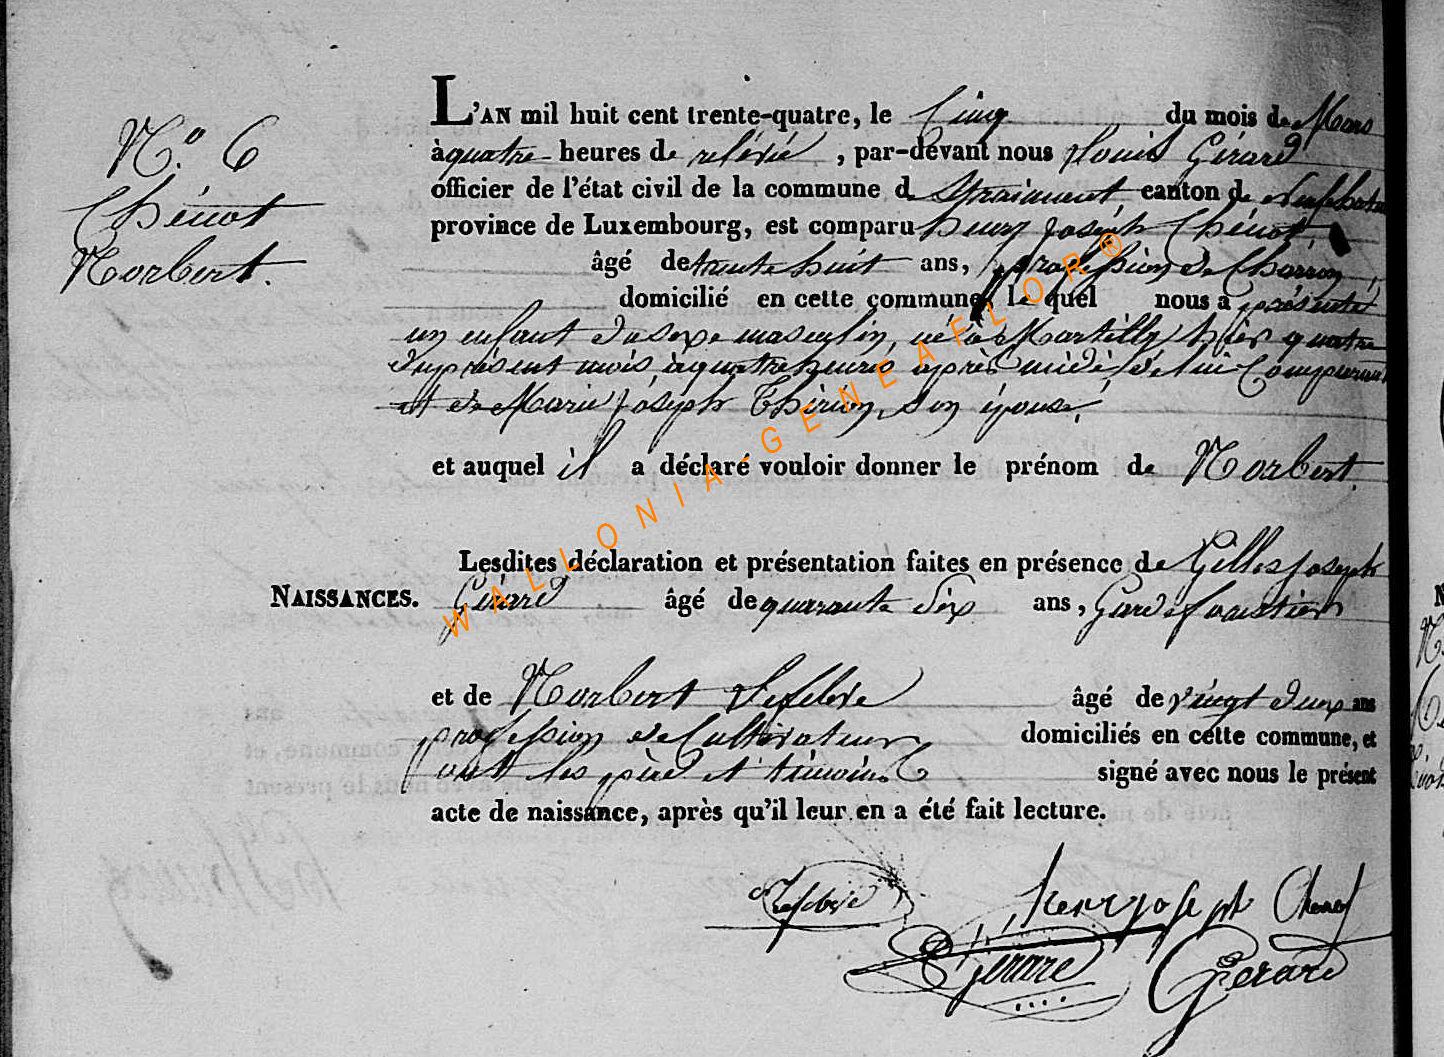 N.º 6
Chénot
Norbert.
NAISSANCES.
L'AN mil huit cent trente-quatre, le Cinq du mois de Mars
à quatre heures de relévée, par-devant nous Louis Gérard
officier de l'état civil de la commune de Straimont canton de Neufchateau
province de Luxembourg, est comparu henry Joséph Chénot,
âgé de trente huit ans, profession de Charron,
domicilié en cette commune, le quel nous a présenté
un enfant du sexe masculin, né à Martilly hier quatre
du présent mois à quatre heures après midi de lui Comparant
et de Marie Joséph Thirion, son épouse,
et auquel il a déclaré vouloir donner le prénom de Norbert.
Lesdites déclaration et présentation faites en présence de Gilles Joseph
Gérard âgé de quarante Six ans, Garde forestier
et de Norbert Lefebve âgé de vingt deux ans
profession de Cultivateur domiciliés en cette commune, et
ont les père et témoins signé avec nous le présent
acte de naissance, après qu'il leur en a été fait lecture.
Lefebve henry joseph Chenot
Gérard Gerard
WALLONIA-GENEAFLOR®